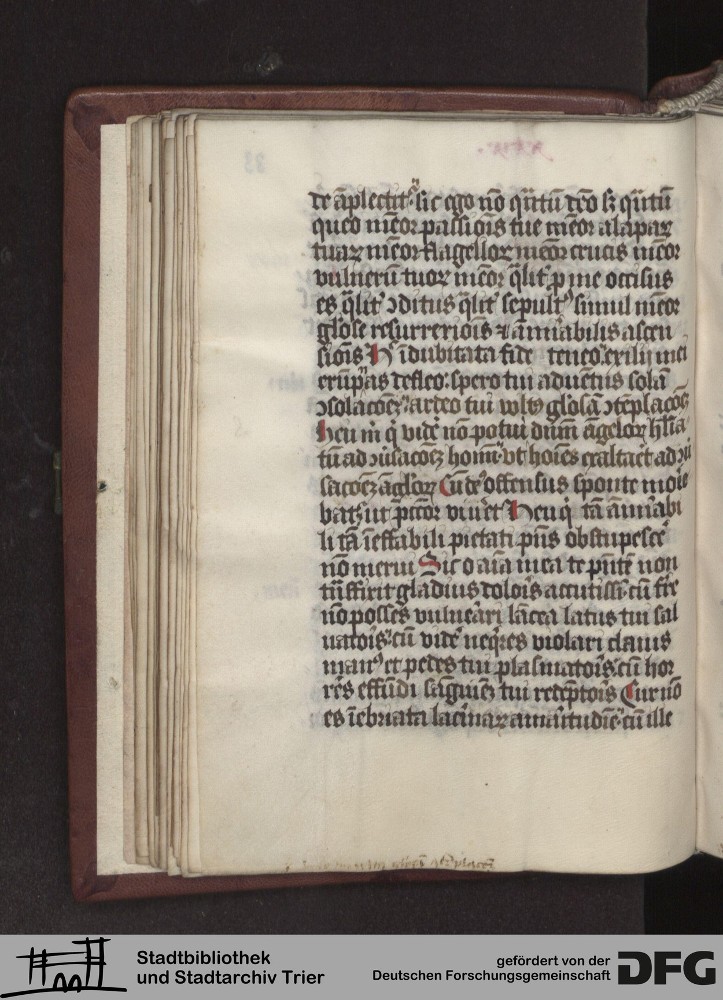 de āplectit᷑. sic ego nō q̄ntū dēo sꝫ q̄ntū
queo mēor passiōis tue mēor alapaꝝ
tuaꝝ mēor flagelloꝝ mēor crucis mēor
vulnerū tuoꝝ mēor q̄lit᷑ p me occisus
es q̄lit᷑ ↄditus q̄lit᷑ sepult᷒ simul mēor
gl̄ose resurrexiōis ⁊ āmirabilis ascen
siōis H īdubitata fide teneo exilij mei
erūp̄as defleo: spero tui aduētus solā
ↄsolacōeꝫ ardeo tui vult᷒ gl̄osā ↄtēplacōeꝫ
Heu m̄ q̇ videˀ nō potui dn̄m āgeloꝝ
tū ad homīˀ vt hoīes exaltaˀet ad
sacōeꝫ āgl̄oꝝ Cū deˀ offensus sponte morie
bat᷑ ut p̄ctōr viuˀet Heu q̇ tā āmirabi
li tā īeffabili pietati p̄ns obstupesceˀ
nō merui Sic o aīa mea te p̄ntē non
trāffixit gladius doloīs accutissīˀ cū ferˀre
nō posses vulneˀari lācea latus tui sal
uatoīs: cū videˀ neq̇res violari clauis
man᷒ et pedes tui plasmatoīs: cū hor
rēs effūdi sāgīneꝫ tui redēptoīs Cur nō
es īebriata lac̄maꝝ amaītudīe cū ille
Stadtbibliothek
und Stadtarchiv Trier
gefördert von der
Deutschen Forschungsgemeinschaft
DFG